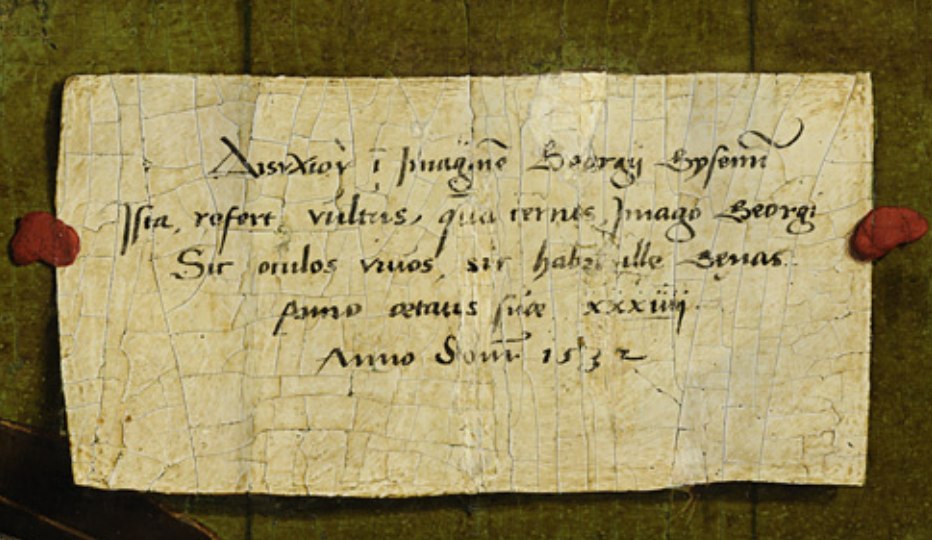 Δίστιχον ī Imaginē Georgij Gysenij
Ista refert vultus, quā cernis, Imago Georgi
Sic oculos viuos, sic habet ille genas
Anno ætatis suæ xxxiiij
Anno Dom̄ 1532